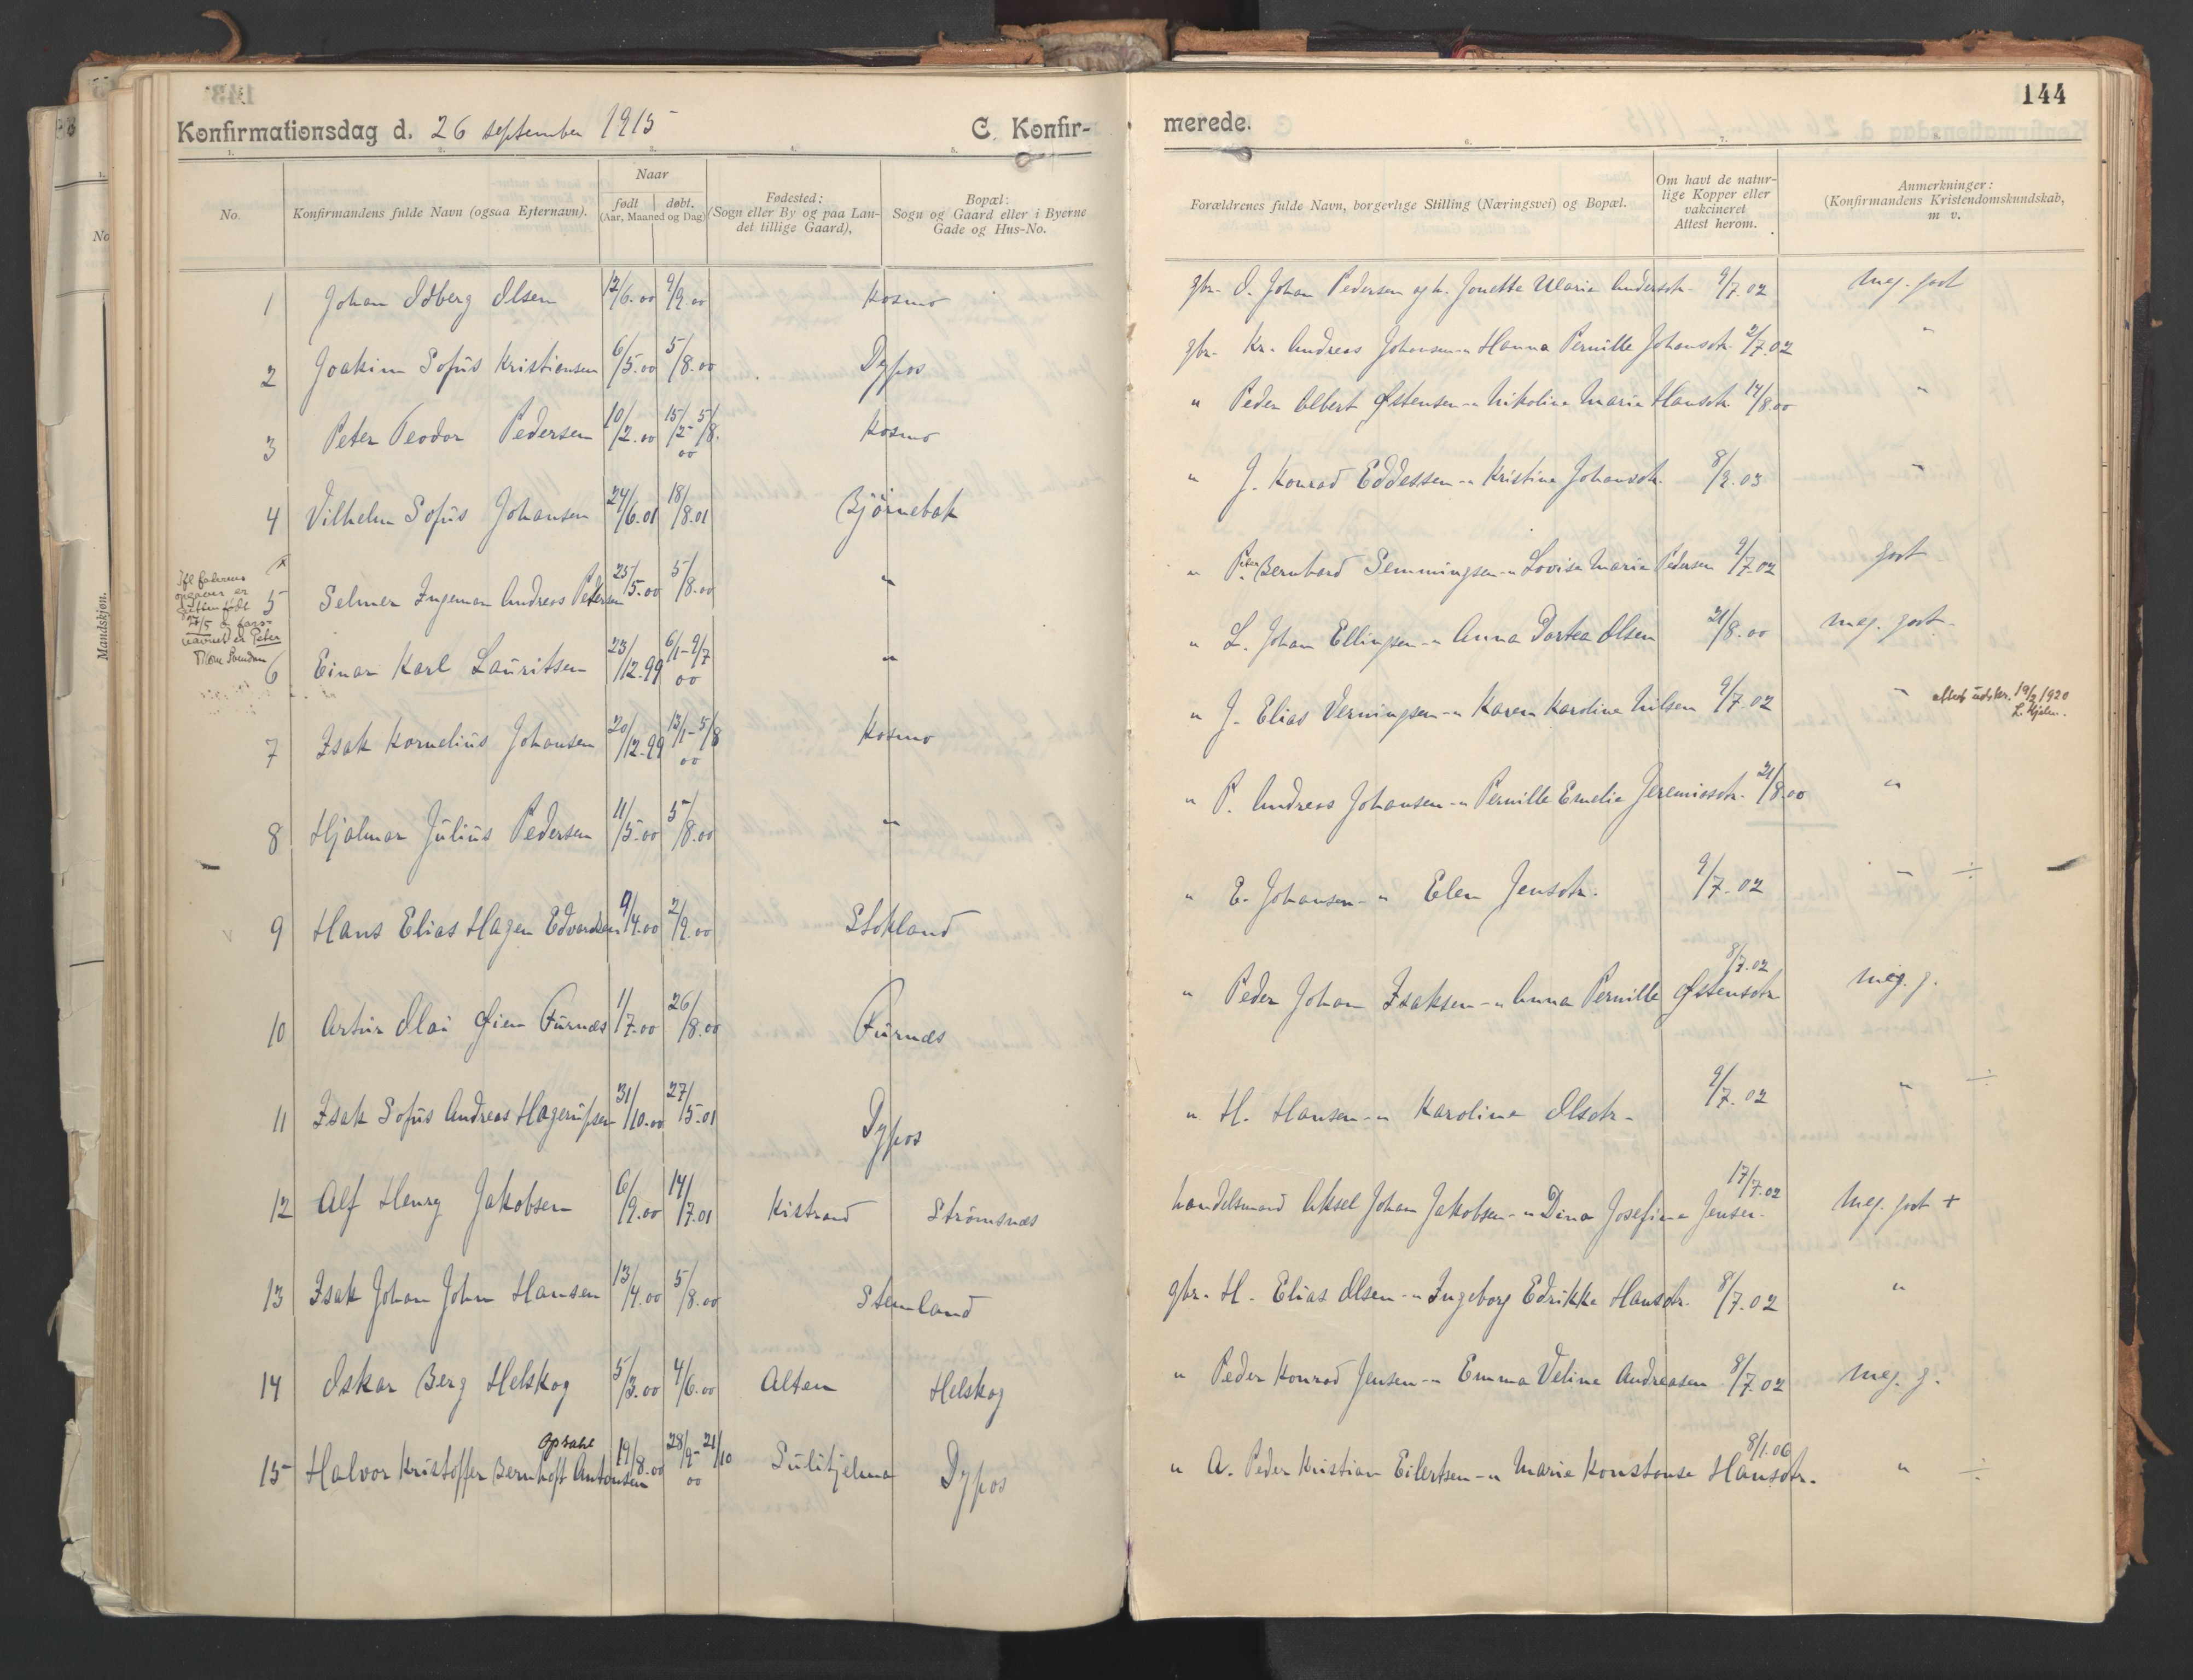 144
Konfirmationsdag d. 26 september 1915 C. Konfir-
merede.
1. 2. 3. 4. 5. 6. 7.
No.
Konfirmandens fulde Navn (ogsaa Efternavn).
Naar
født døbt.
(Aar, Maaned og Dag)
Fødested:
(Sogn eller By og paa Lan-
det tillige Gaard),
Bopæl:
Sogn og Gaard eller i Byerne
Gade og Hus-No.
Forældrenes fulde Navn, borgerlige Stilling (Næringsvei) og Bopæl.
Om havt de natur-
lige Kopper eller
vakcineret
Attest herom.
Anmerkninger:
(Konfirmandens Kristendomskundskab,
m v.
Mandskjøn.
1 Johan Odberg Olsen 12/6.00 9/9.00 Kosmo gbr. O. Johan Pedersen og h. Jonette Maria Andersdtr. 9/7.02 meg. godt
2 Joakim Sofus Kristiansen 6/5.00 5/8.00 Dypos gbr. Kr. Andreas Johansen - " Hanna Pernille Johansdtr. 9/7.02 "
3 Peter Teodor Pedersen 10/2.00 15/2-5/8.00 Kosmo " Peder Albert Østensen - " Nikoline Marie Hansdtr. 14/8.00 "
4 Vilhelm Sofus Johansen 24/6.01 18/8.01 Björnebak " J. Konrad Eddessen - " Kristine Johansdtr. 8/9.03 "
5 Selmer Ingeman Andreas Petersen 25/5.00 5/8.00 " " Peter Bernhard Semmingsen - " Lovise Marie Pedersen 9/7.02 godt
6 Einar Karl Lauritsen 23/12.99 6/1-9/7 00 " " L. Johan Ellingsen - " Anna Dortea Olsen 21/8.00 meg. godt
7 Isak Kornelius Johansen 20/12.99 13/1-5/8 00 Kosmo " J. Elias Verningsen - " Karen Karoline Nilsen 9/7.02 " attest udskr. 19/2 1920
8 Hjalmar Julius Pedersen 11/5.00 5/8.00 " " P. Andreas Johansen - " Pernille Emelie Jeremiasdtr. 21/8.00 "
9 Hans Elias Hagen Edvardsen 9/4.00 2/9.00 Stokland " E. Johansen - " Elen Jensdtr. 9/7.02 " ÷
10 Artur Olai Øien Furnæs 1/7.00 26/8.00 Furnæs " Peder Johan Isaksen - " Anna Pernille Østensdtr 8/7.02 meg. g.
11 Isak Sofus Andreas Hagerupsen 31/10.00 27/5.01 Dypos " H. Hansen - " Karoline Olsdtr. 9/7.02 " ÷
12 Alf Henry Jakobsen 6/9.00 14/7.01 Kistrand Strömsnæs handelsmand Aksel Johan Jakobsen - " Dina Josefine Jensen. 17/7.02 Meg. godt +
13 Isak Johan John Hansen 13/4.00 5/8.00 Stemland gbr. H. Elias Olsen - " Ingeborg Edrikke Hansdtr. 8/7.02 "
14 Oskar Berg Helskog 5/3.00 4/6.00 Alten Helskog " Peder Konrad Jensen - " Emma Veline Andreasen 8/7.02 meg. g.
15 Halvor Kristoffer Bernhoft Antonsen Opsahl 19/8.00 28/9-21/10 00 Sulitjelma Dypos " A. Peder Kristian Eilertsen - " Marie Konstanse Hansdtr. 8/1.06 " ÷